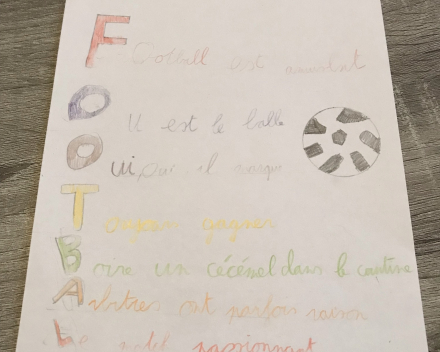 Football est amusant
Où est le balle
Oui, oui, il marque
Toujours gagner
Boire un cécémel dans la cantine
Arbitres ont parfois raison
Le match passionnant